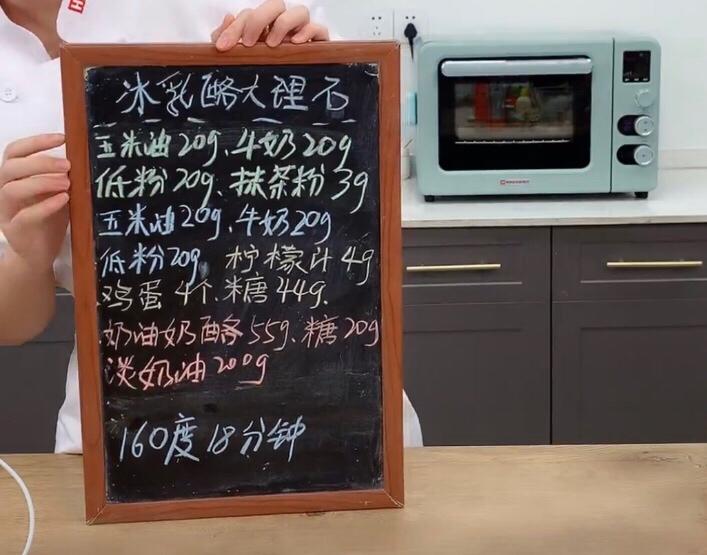 冰乳酪大理石
玉米油20g、牛奶20g
低粉20g、抹茶粉3g
玉米油20g、牛奶20g
低粉20g 柠檬汁4g
鸡蛋4个、糖44g.
奶油奶酪55g、糖20g
淡奶油200g
160度18分钟